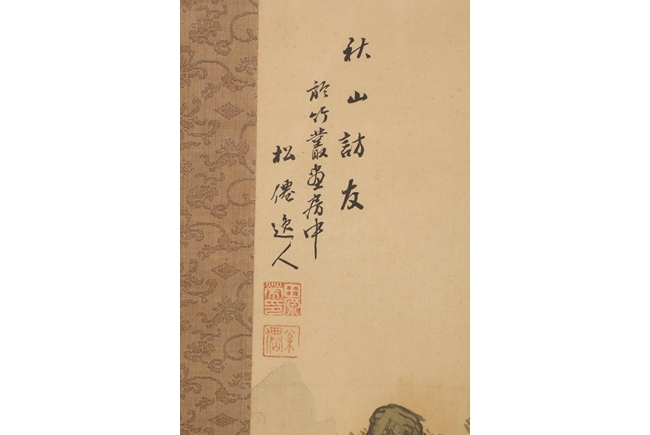 秋山訪友
於竹叢畫房中
松僊逸人